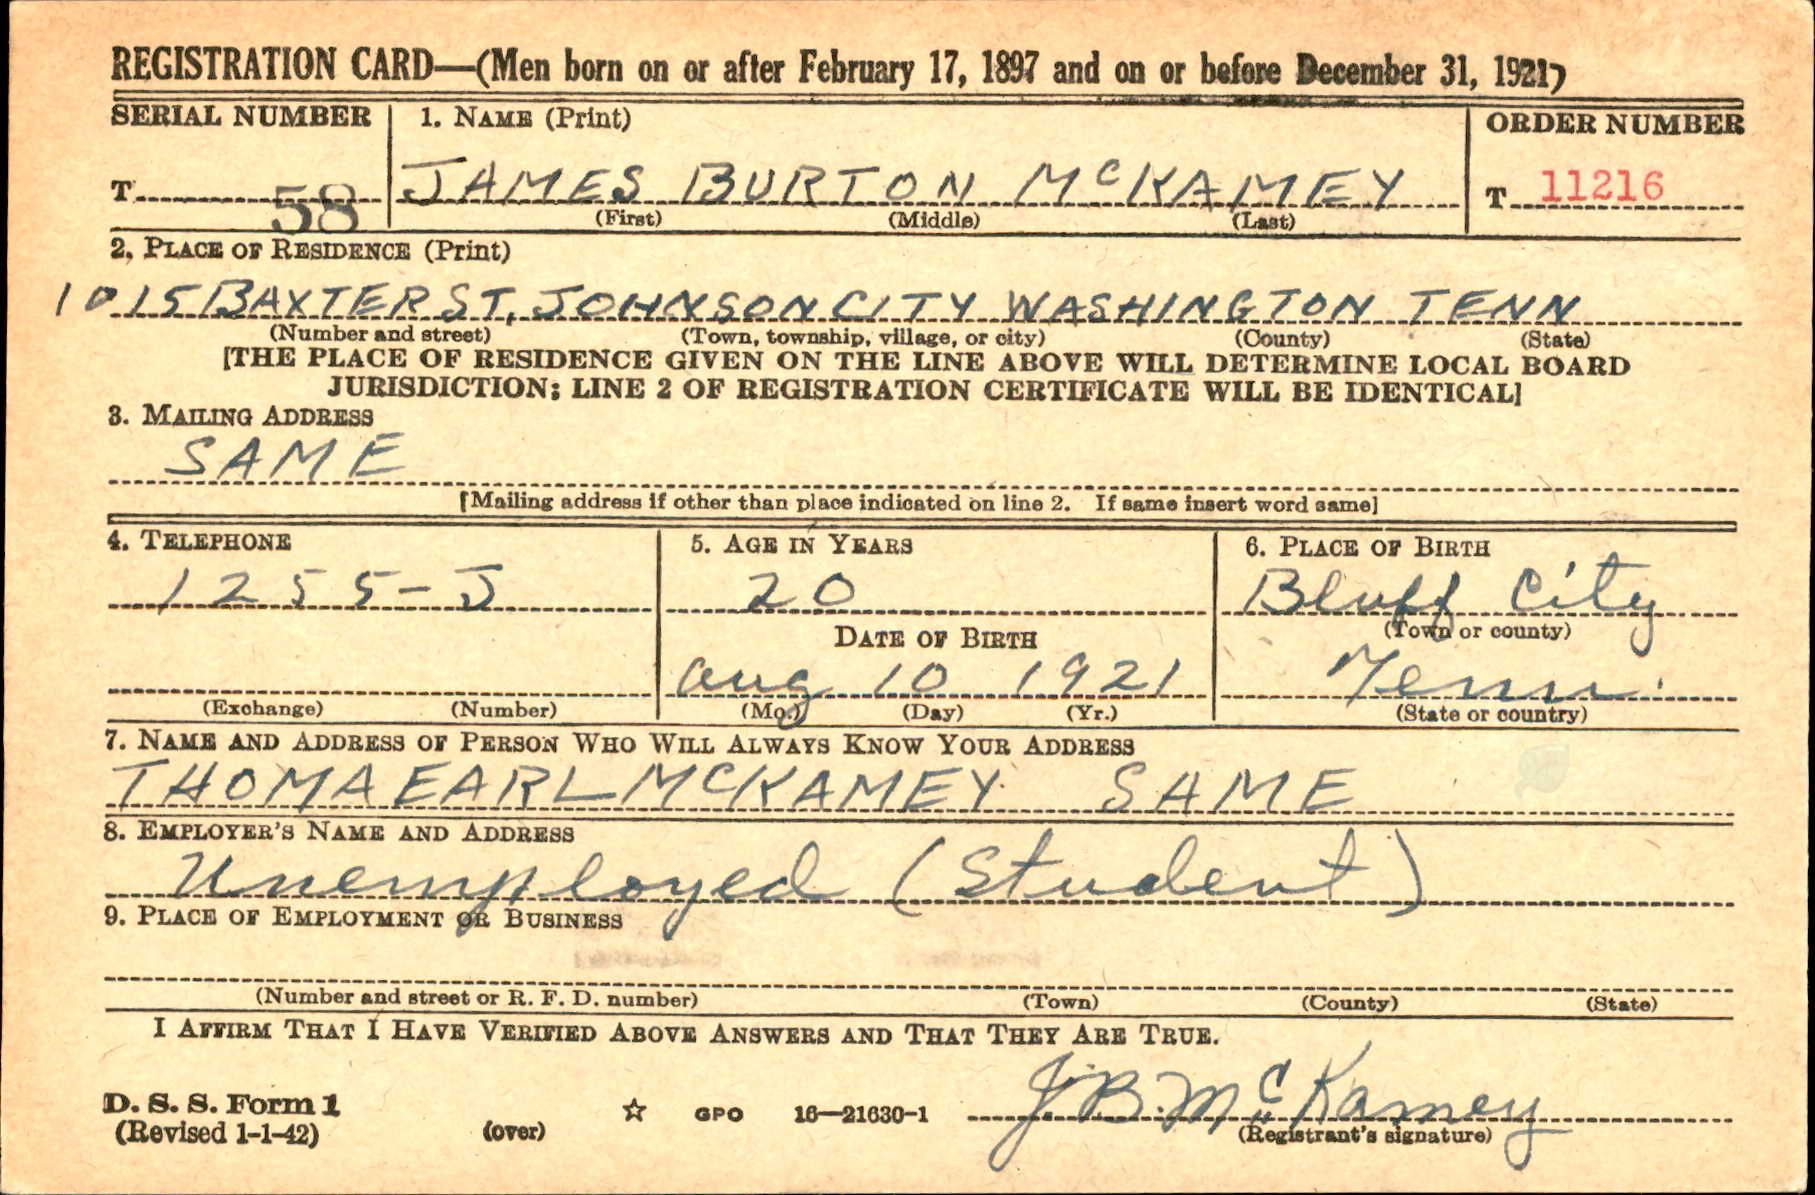 REGISTRATION CARD—(Men born on or after February 17, 1897 and on or before December 31, 1921)
SERIAL NUMBER 1. NAME (Print) ORDER NUMBER
T 58 JAMES BURTON McKAMEY T 11216
(First) (Middle) (Last)
2. PLACE OF RESIDENCE (Print)
1015 BAXTER ST, JOHNSON CITY WASHINGTON TENN
(Number and street) (Town, township, village, or city) (County) (State)
[THE PLACE OF RESIDENCE GIVEN ON THE LINE ABOVE WILL DETERMINE LOCAL BOARD
JURISDICTION; LINE 2 OF REGISTRATION CERTIFICATE WILL BE IDENTICAL]
3. MAILING ADDRESS
SAME
[Mailing address if other than place indicated on line 2. If same insert word same]
4. TELEPHONE 5. AGE IN YEARS 6. PLACE OF BIRTH
1255-J 20 Bluff City
DATE OF BIRTH (Town or county)
Aug 10 1921 Tenn.
(Exchange) (Number) (Mo.) (Day) (Yr.) (State or country)
7. NAME AND ADDRESS OF PERSON WHO WILL ALWAYS KNOW YOUR ADDRESS
THOMA EARL McKAMEY SAME
8. EMPLOYER'S NAME AND ADDRESS
Unemployed (Student)
9. PLACE OF EMPLOYMENT OR BUSINESS
(Number and street or R. F. D. number) (Town) (County) (State)
I AFFIRM THAT I HAVE VERIFIED ABOVE ANSWERS AND THAT THEY ARE TRUE.
D. S. S. Form 1
(Revised 1-1-42) (over) ☆ GPO 16—21630-1 J.B. McKamey
(Registrant's signature)